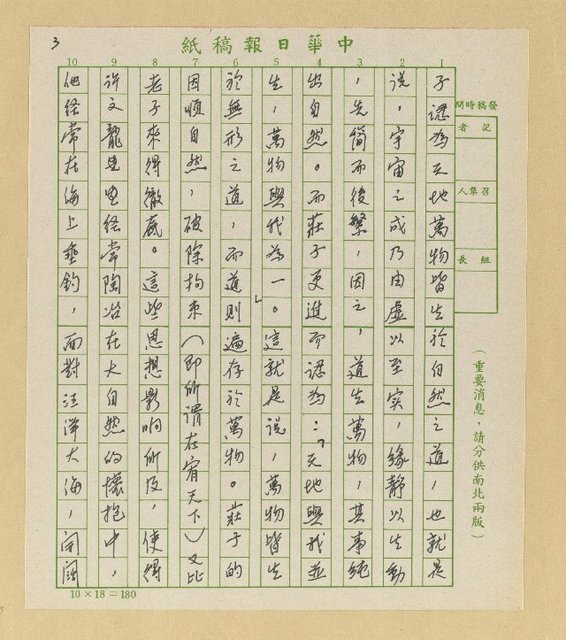 3
中華日報稿紙
發稿時間
記者
召集人
組長
（重要消息，請分供南北兩版）
1
2
3
4
5
6
7
8
9
10
子認為天地萬物皆生於自然之道，也就是
說，宇宙之成乃由虛以至實，緣靜以生動
，先簡而後繁，因之，道生萬物，其事純
出自然。而莊子更進而認為：「天地與我並
生，萬物與我為一」。這就是說，萬物皆生
於無形之道，而道則遍存於萬物。莊子的
因順自然，破除拘束（即所謂在宥天下）又比
老子來得徹底。這些思想影响所及，使得
許文龍經常陶冶在大自然的懷抱中，
他經常在海上垂釣，面對汪洋大海，開闊
10×18＝180